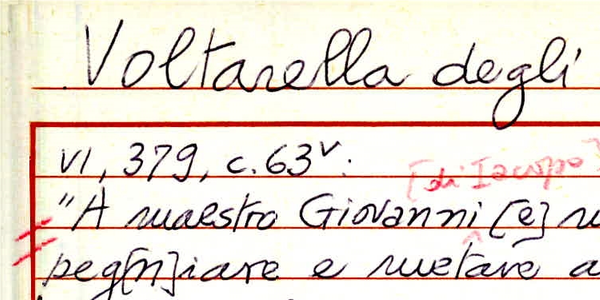 Voltarella degli
VI, 379, c. 63v:
[di Iacopo]
"A maestro Giovanni [e]
peg[n]iare e